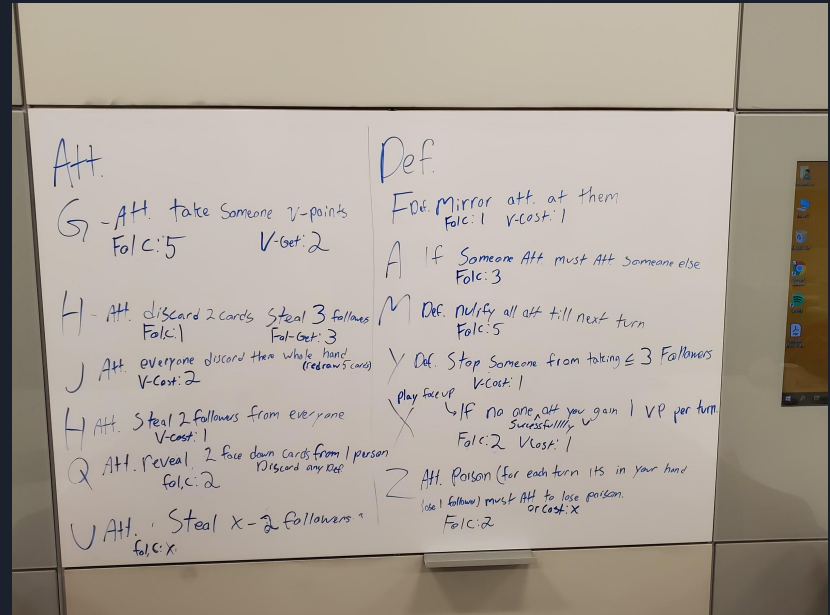 Att.
G - Att. take someone v-points
Fol C: 5 V-Get: 2
H - Att. discard 2 cards steal 3 follows
Fol C: 1 Fol-Get: 3
J Att. everyone discord there whole hand
(redraw 5 cards)
V-Cost: 2
H Att. Steal 2 followers from everyone
V-cost: 1
Q Att. reveal 2 face down cards from 1 person
Discard any Def
fol,c: 2
U Att. Steal x-2 followers
fol,c: x
Def.
F Def. Mirror att. at them
Folc: 1 V-Cost: 1
A If Someone Att. must Att someone else
Folc: 3
M Def. nulify all att till next turn
Folc: 5
Y Def. Stop Someone from taking ≤ 3 Followers
V-Cost: 1
play face up
X ↳ If no one att you gain 1 VP per turn.
Sucessfully
Folc: 2 Vcost: 1
Z Att. Poison (for each turn its in your hand
lose 1 follow) must Att to lose poison.
or cost: x
Folc: 2